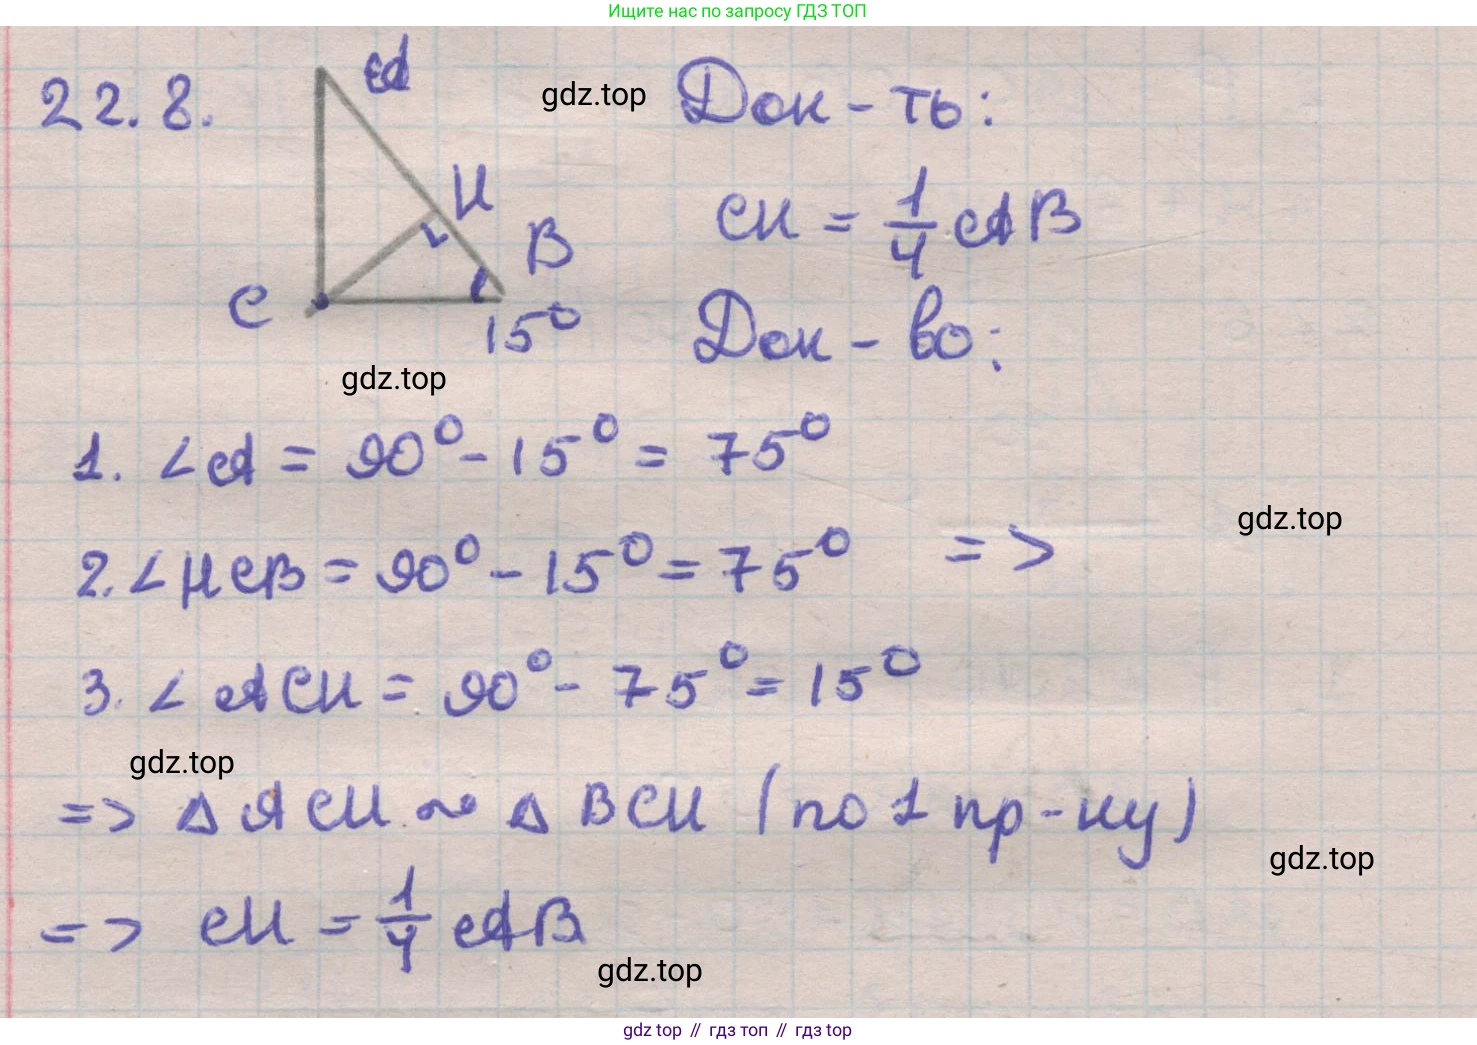 Ищите нас по запросу ГДЗ ТОП
22.8.
A
gdz.top
Док-ть:
H
CH = 1/4 AB
B
C
15°
Док-во:
gdz.top
1. ∠A = 90° - 15° = 75°
gdz.top
2. ∠HCB = 90° - 15° = 75° =>
3. ∠ACH = 90° - 75° = 15°
gdz.top
=> △ACH ~ △BCH (по 1 пр-ку)
gdz.top
=> CH = 1/4 AB
gdz.top
gdz top // гдз топ // гдз top